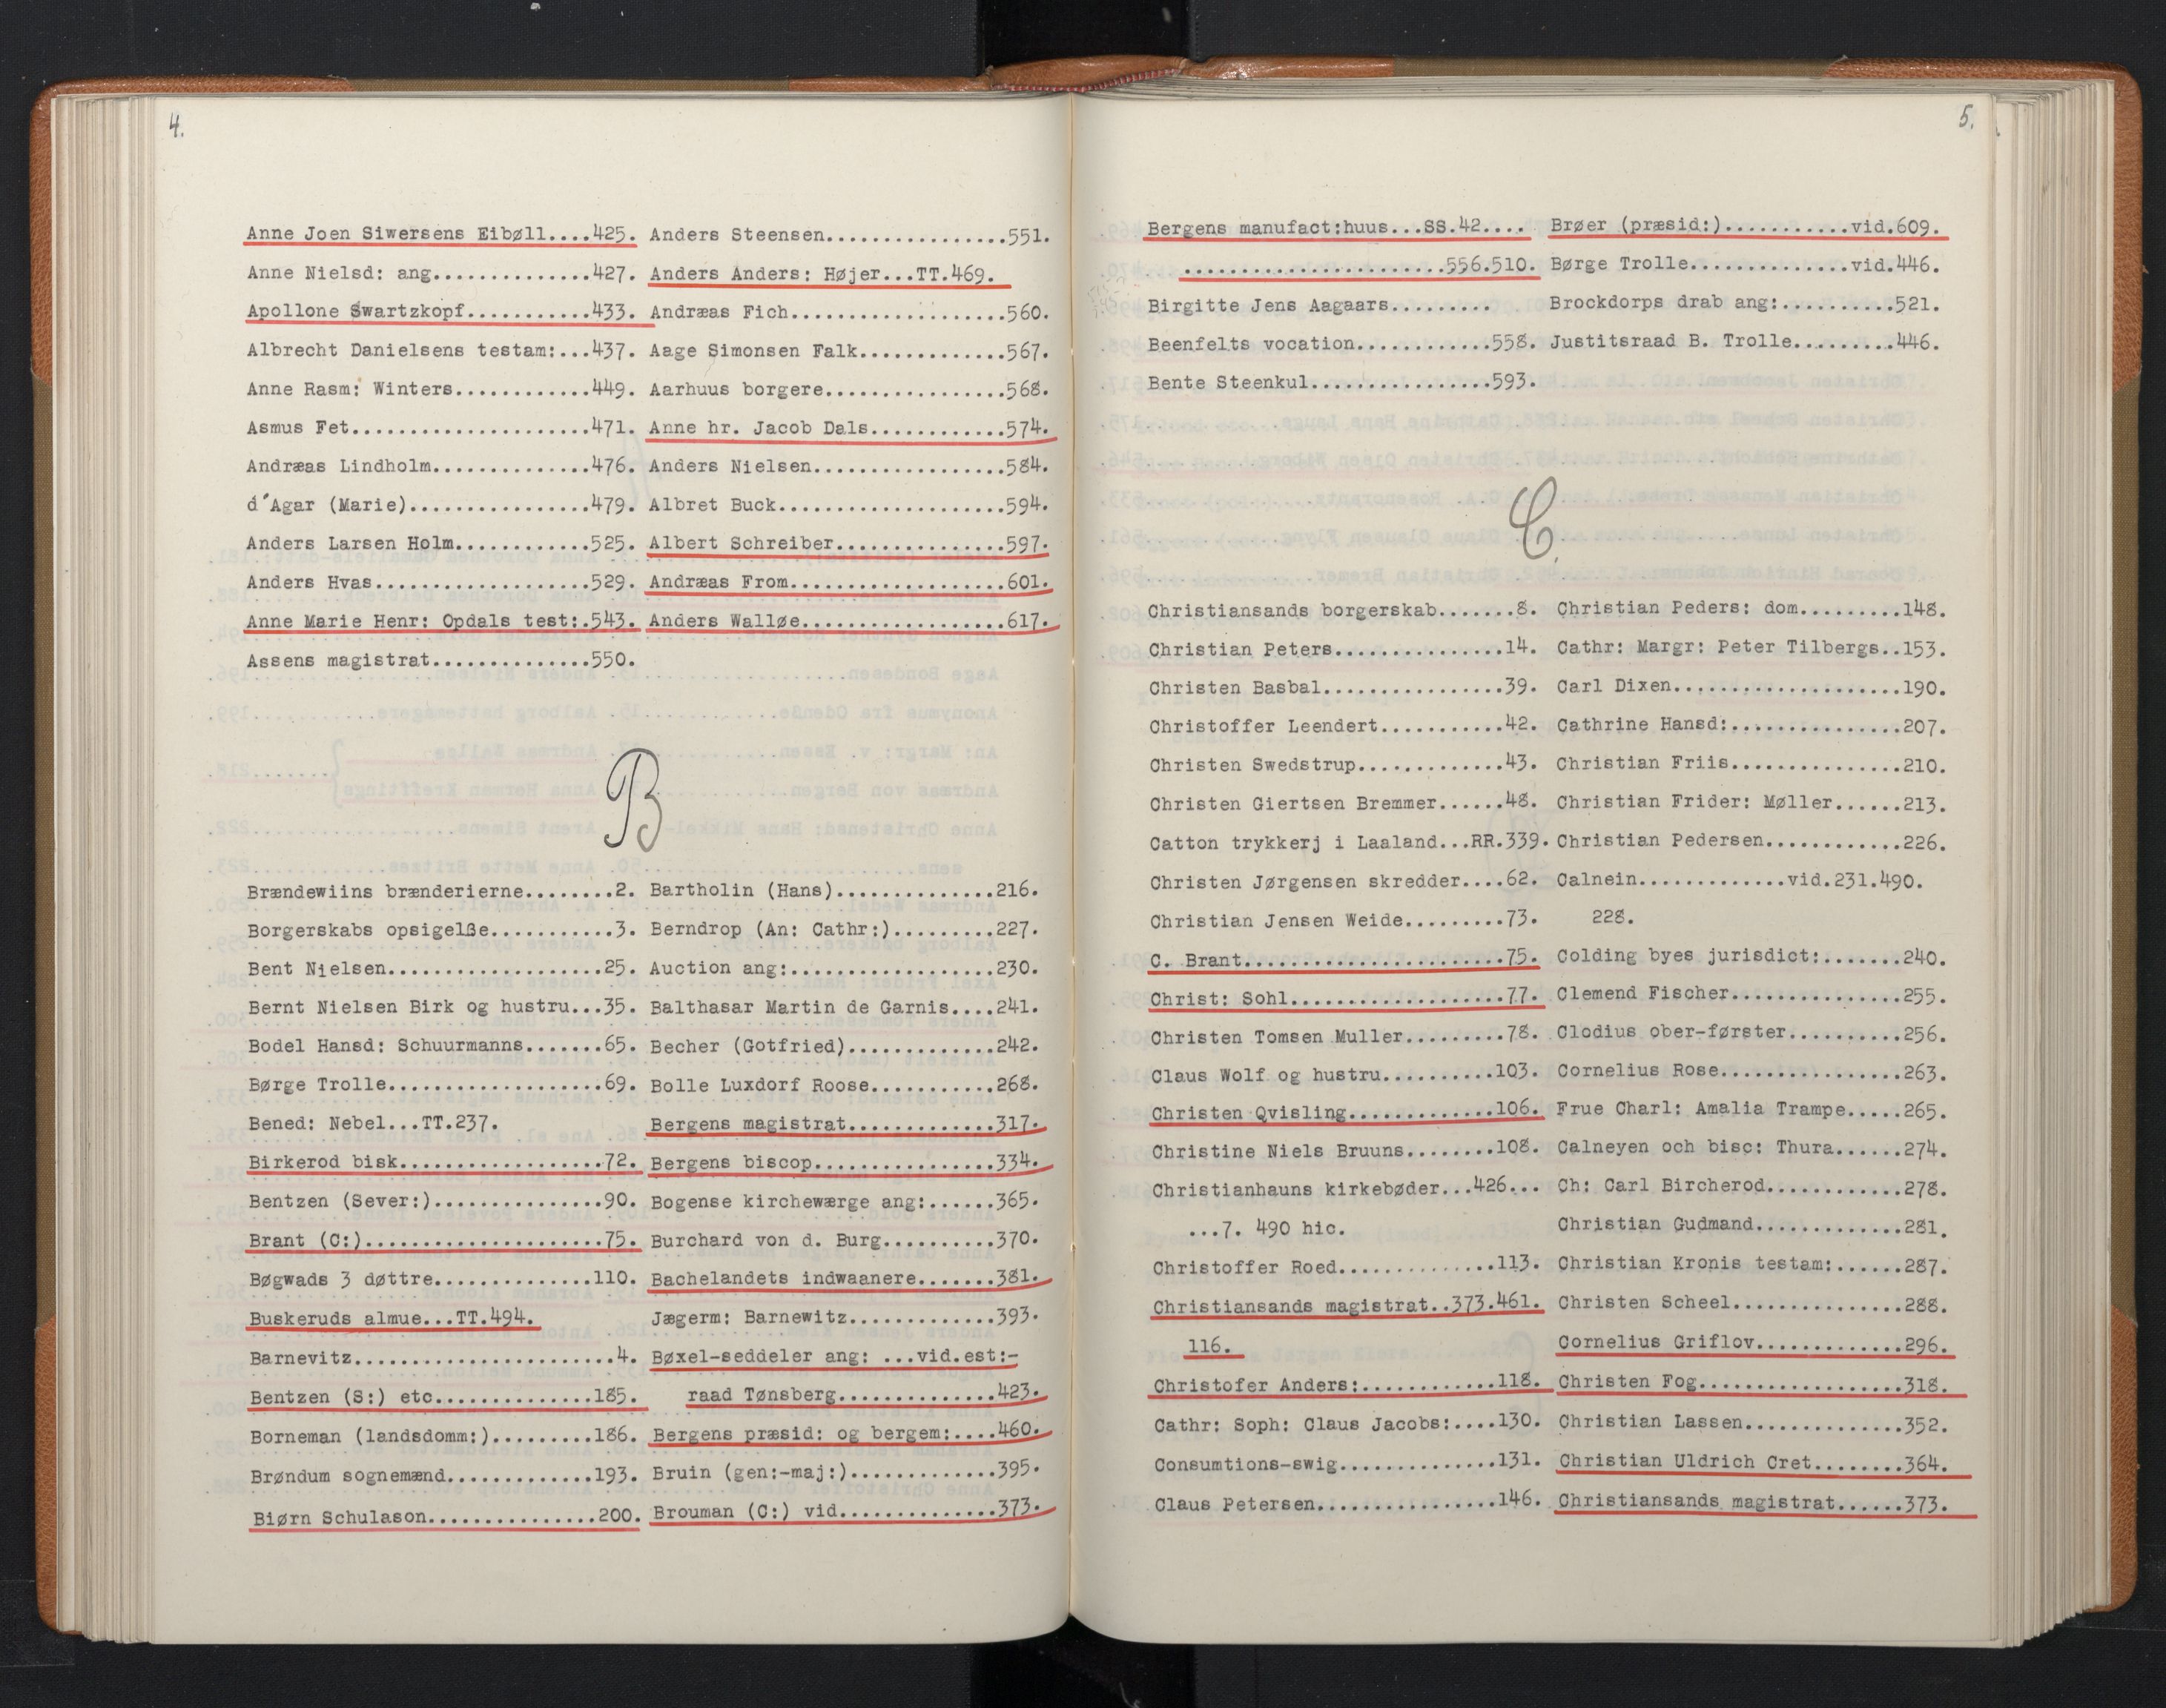 4.
Anne Joen Siwersens Eibøll....425.
Anne Nielsd: ang..............427.
Apollone Swartzkopf...........433.
Albrecht Danielsens testam:...437.
Anne Rasm: Winters............449.
Asmus Fet.....................471.
Andræas Lindholm..............476.
d´Agar (Marie)................479.
Anders Larsen Holm............525.
Anders Hvas...................529.
Anne Marie Henr: Opdals test:.543.
Assens magistrat..............550.
Anders Steensen................551.
Anders Anders: Højer...TT.469.
Andræas Fich...................560.
Aage Simonsen Falk.............567.
Aarhuus borgere................568.
Anne hr. Jacob Dals............574.
Anders Nielsen.................584.
Albret Buck....................594.
Albert Schreiber...............597.
Andræas From...................601.
Anders Walløe..................617.
B
Brændewiins brænderierne........2.
Borgerskabs opsigelße...........3.
Bent Nielsen...................25.
Bernt Nielsen Birk og hustru...35.
Bodel Hansd: Schuurmanns.......65.
Børge Trolle...................69.
Bened: Nebel...TT.237.
Birkerod bisk..................72.
Bentzen (Sever:)...............90.
Brant (C:).....................75.
Bøgwads 3 døttre..............110.
Buskeruds almue...TT.494.
Barnevitz.......................4.
Bentzen (S:) etc..............185.
Borneman (landsdomm:).........186.
Brøndum sognemænd.............193.
Biørn Schulason...............200.
Bartholin (Hans)..............216.
Berndrop (An: Cathr:).........227.
Auction ang:..................230.
Balthasar Martin de Garnis....241.
Becher (Gotfried).............242.
Bolle Luxdorf Roose...........268.
Bergens magistrat.............317.
Bergens biscop................334.
Bogense kirchewærge ang:......365.
Burchard von d. Burg..........370.
Bachelandets indwaanere.......381.
Jægerm: Barnewitz.............393.
Bøxel-seddeler ang: ...vid.est:-
raad Tønsberg..............423.
Bergens præsid: og bergem:....460.
Bruin (gen:-maj:).............395.
Brouman (C:) vid..............373.
5.
Bergens manufact:huus...SS.42....
.......................556.510.
Birgitte Jens Aagaars.........
Beenfelts vocation............558.
Bente Steenkul................593.
Brøer (præsid:)...........vid.609.
Børge Trolle..............vid.446.
Brockdorps drab ang:..........521.
Justitsraad B. Trolle.........446.
C.
Christiansands borgerskab.......8.
Christian Peters...............14.
Christen Basbal................39.
Christoffer Leendert...........42.
Christen Swedstrup.............43.
Christen Giertsen Bremmer......48.
Catton trykkerj i Laaland...RR.339.
Christen Jørgensen skredder....62.
Christian Jensen Weide.........73.
C. Brant.......................75.
Christ: Sohl...................77.
Christen Tomsen Muller.........78.
Claus Wolf og hustru..........103.
Christen Qvisling.............106.
Christine Niels Bruuns........108.
Christianhauns kirkebøder...426...
...7. 490 hic.
Christoffer Roed..............113.
Christiansands magistrat..373.461.
116.
Christofer Anders:............118.
Cathr: Soph: Claus Jacobs:....130.
Consumtions-swig..............131.
Claus Petersen................146.
Christian Peders: dom.........148.
Cathr: Margr: Peter Tilbergs..153.
Carl Dixen....................190.
Cathrine Hansd:...............207.
Christian Friis...............210.
Christian Frider: Møller......213.
Christian Pedersen............226.
Calnein.............vid.231.490.
228.
Colding byes jurisdict:.......240.
Clemend Fischer...............255.
Clodius ober-førster..........256.
Cornelius Rose................263.
Frue Charl: Amalia Trampe.....265.
Calneyen och bisc: Thura......274.
Ch: Carl Bircherod............278.
Christian Gudmand.............281.
Christian Kronis testam:......287.
Christen Scheel...............288.
Cornelius Griflov.............296.
Christen Fog..................318.
Christian Lassen..............352.
Christian Uldrich Cret........364.
Christiansands magistrat......373.